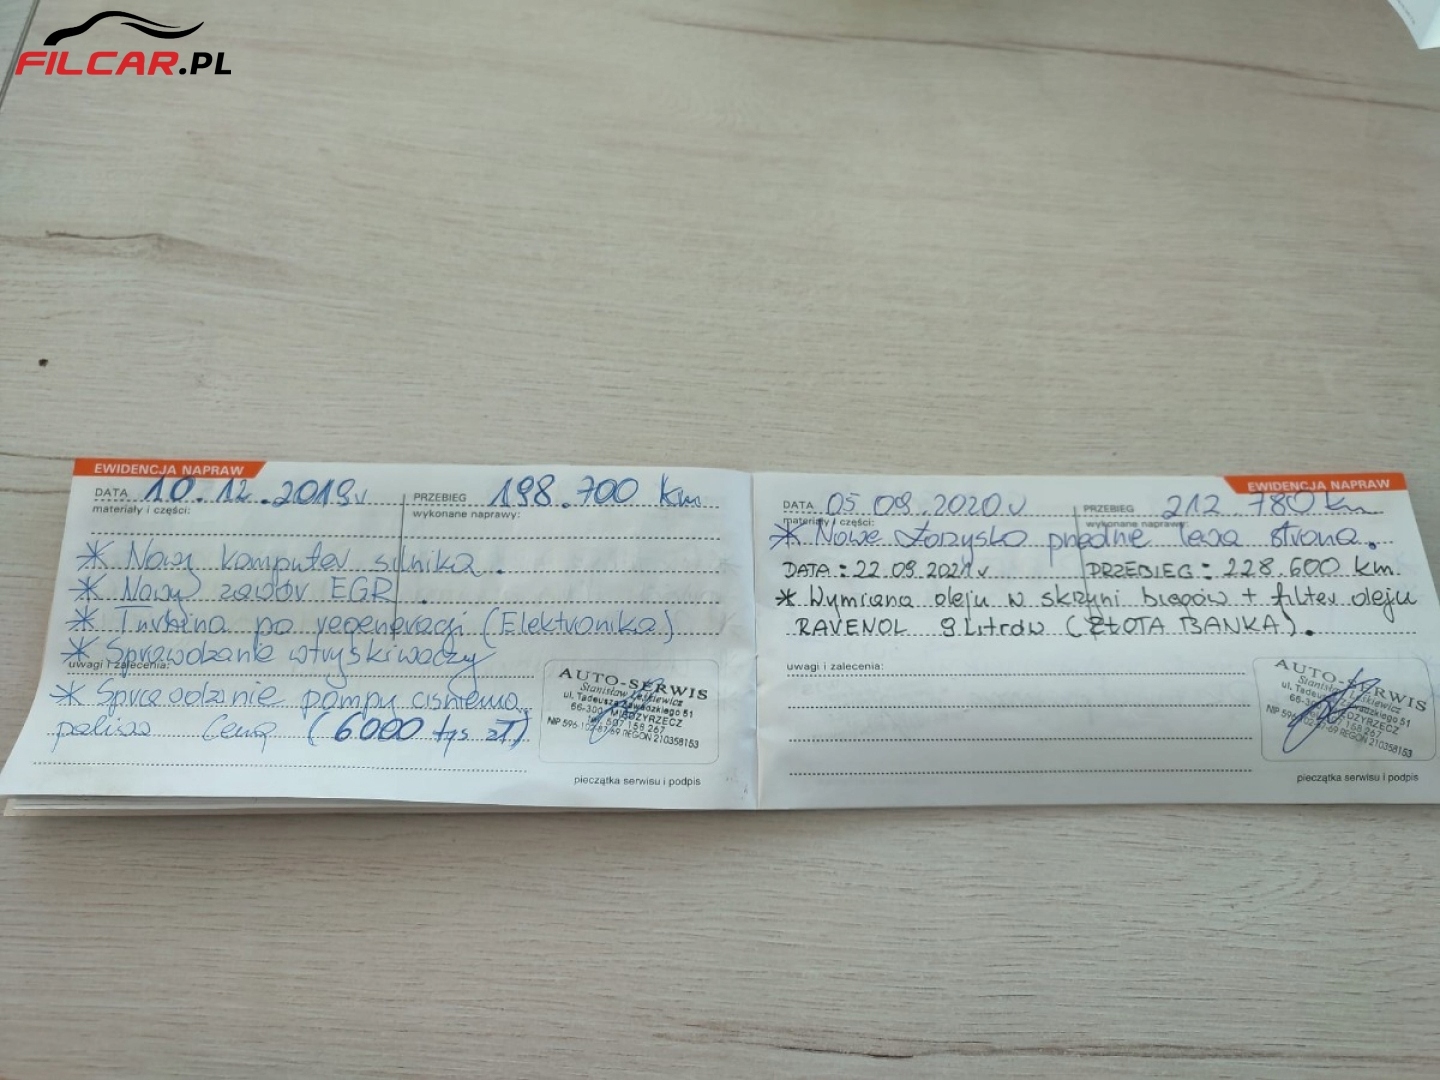 FILCAR.PL
EWIDENCJA NAPRAW
DATA 10.12.2019r PRZEBIEG 198.700 km
materiały i części: wykonane naprawy:
* Nowy komputer silnika.
* Nowy zawór EGR.
* Turbina po regeneracji (Elektronika)
* Sprawdzanie wtryskiwaczy
uwagi i zalecenia:
* Sprawdzanie pompy ciśnienia
paliwa Cena (6000 tys zł)
AUTO-SERWIS
Stanisław
ul. Tadeusza Zawadzkiego 51
66-300 MIĘDZYRZECZ
507 158 267
REGON 210358153
pieczątka serwisu i podpis
EWIDENCJA NAPRAW
DATA 05.09.2020r PRZEBIEG 212.780 km
materiały i części: wykonane naprawy:
* Nowe łożysko przednie lewa strona.
DATA: 22.09.2021r PRZEBIEG: 228.600 km
* Wymiana oleju w skrzyni biegów + filter oleju
RAVENOL 9 Litrów (ZŁOTA BANKA).
uwagi i zalecenia:
AUTO-SERWIS
Stanisław
ul. Tadeusza Zawadzkiego 51
66-300 MIĘDZYRZECZ
507 158 267
REGON 210358153
pieczątka serwisu i podpis